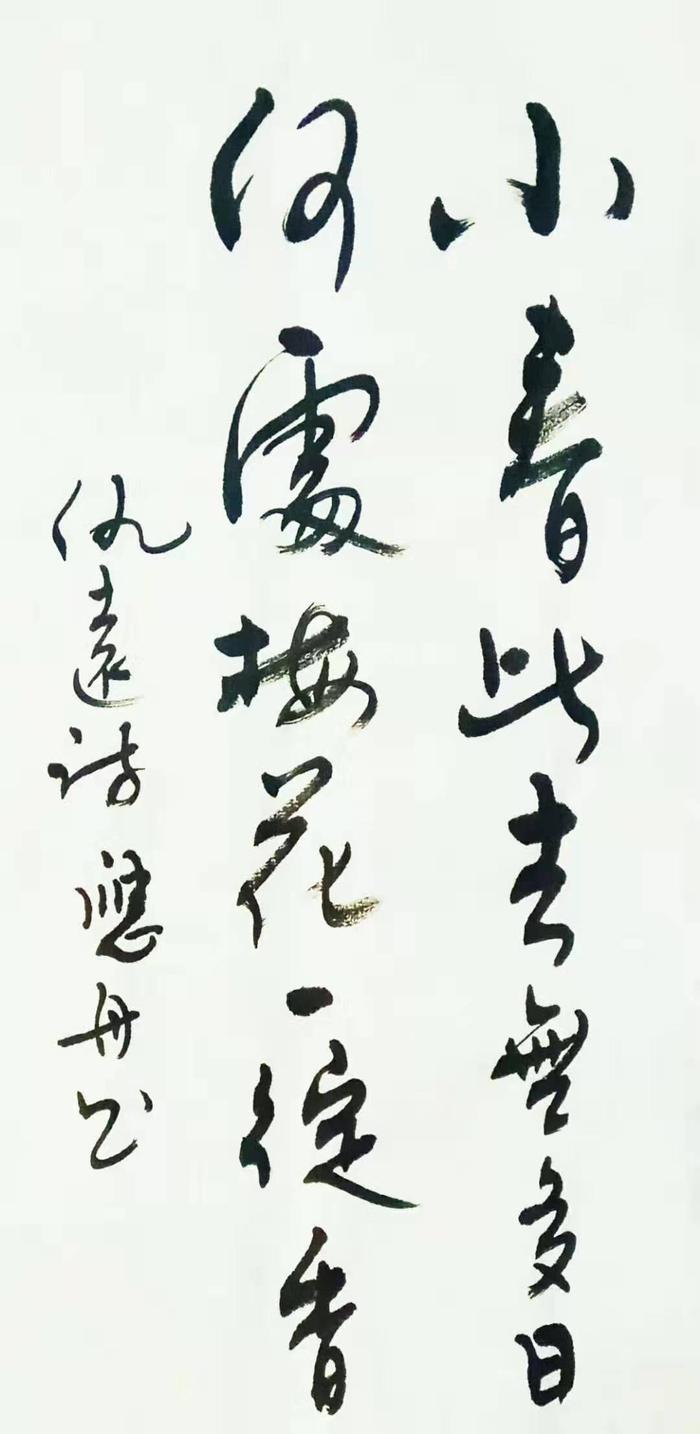 小春此去無多日
何處梅花一綻香
仇遠詩 书